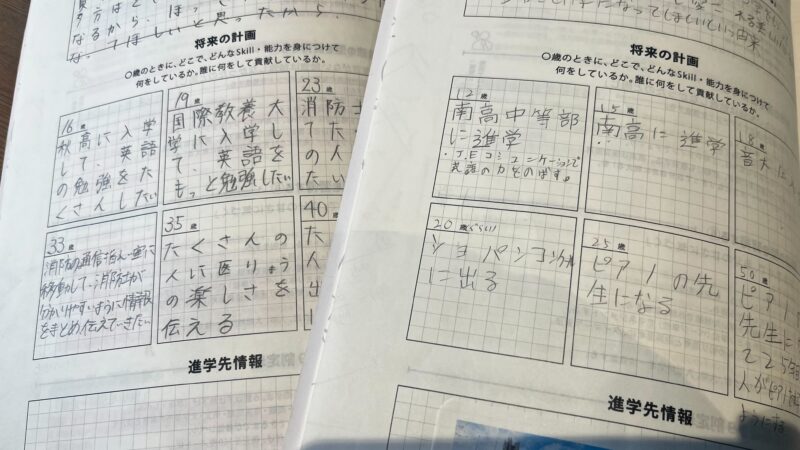 なるから、ほっ
なってほしいと思ったから。
将来の計画
〇歳のときに、どこで、どんなSkill・能力を身につけて
何をしているか。誰に何をして貢献しているか。
16歳
秋高に入学
して、英語
の勉強をた
くさんしたい
19歳
国際教養大
学に入学し
て、英語を
もっと勉強したい
23歳
消防士
てた
の人
たい
33歳
消防の通信指令室に
移動して、消防士が
分かりやすいように情報
をまとめ伝えていきたい
35歳
たくさんの
人に医りょう
の楽しさを
伝える
40歳
た
人
出
に
進学先情報
になってしまいたいという由来
将来の計画
〇歳のときに、どこで、どんなSkill・能力を身につけて
何をしているか。誰に何をして貢献しているか。
12歳
南高中等部
に進学
・J.Eコミュニケーションで
英語の力をのばす。
15歳
南高に進学
18歳
音大に入
20歳ぐらい
ショパンコンクール
に出る
25歳
ピアノの先
生になる
50歳
ピア
先生に
て25年
人がピア
ようにする
進学先情報